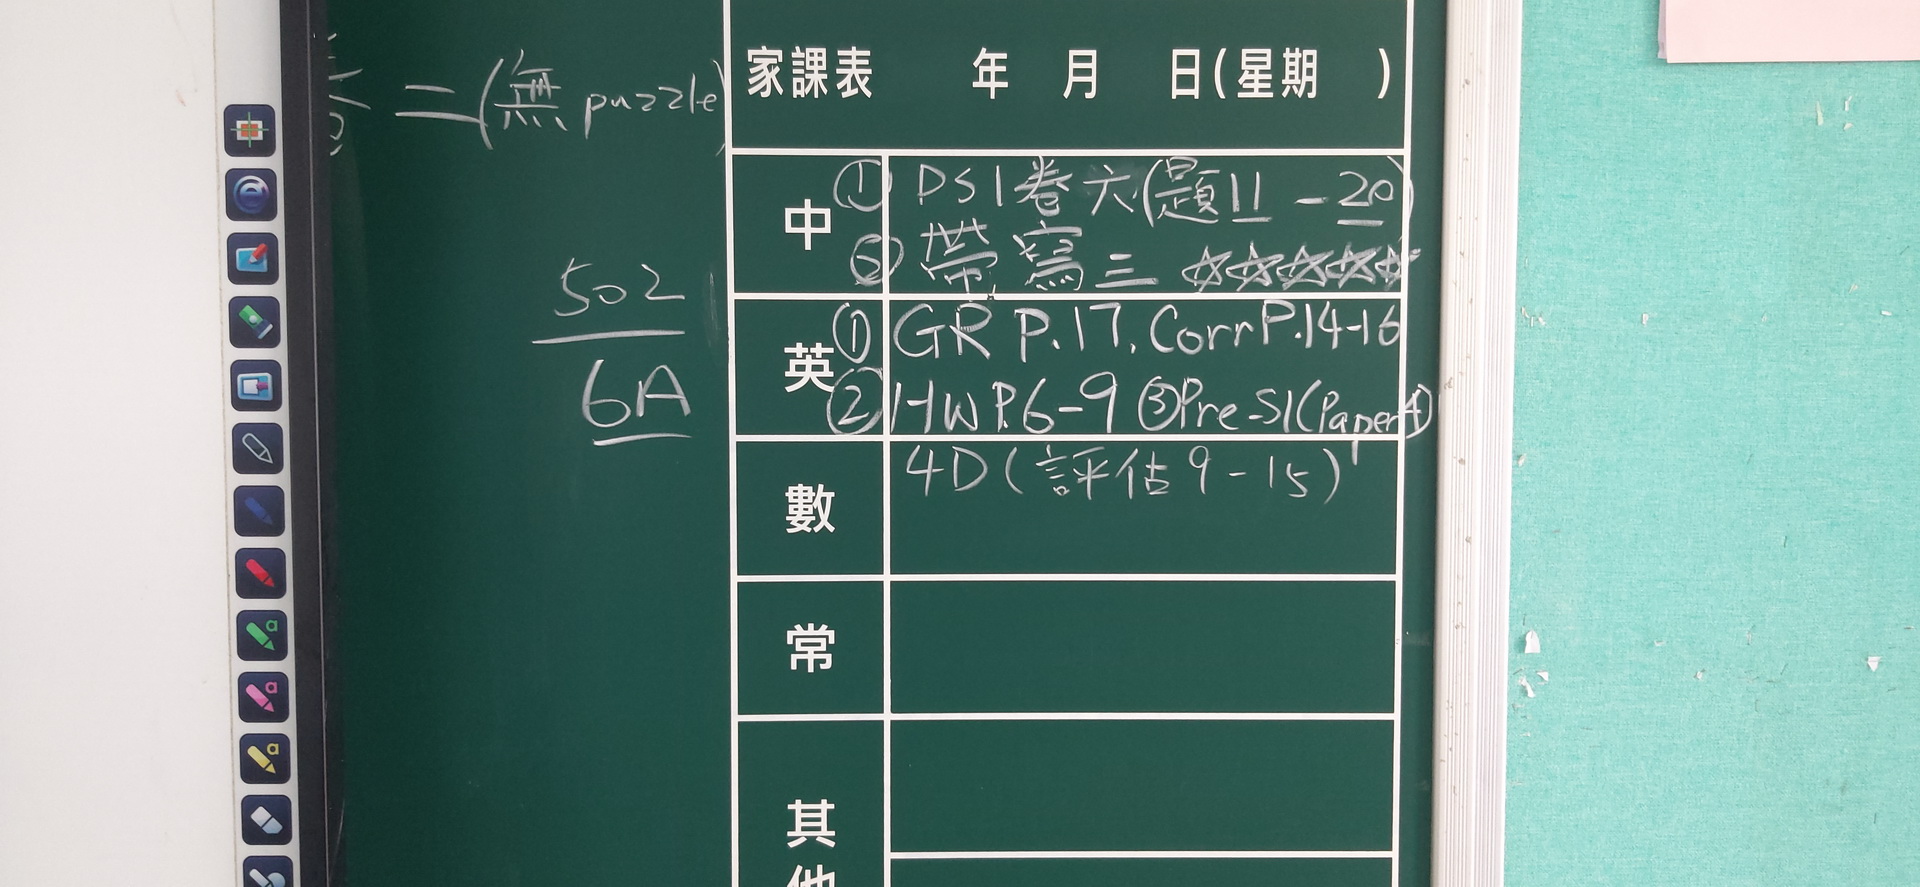 二(無puzzle
家課表 年 月 日(星期 )
中
① PS1卷六(題11-20)
② 帶寫三 ☆☆☆☆☆
502
6A
英
① GR P.17, Corr P.14-16
② HW P.6-9 ③ Pre-S1(Paper4)
數
4D(評估9-15)
常
其他